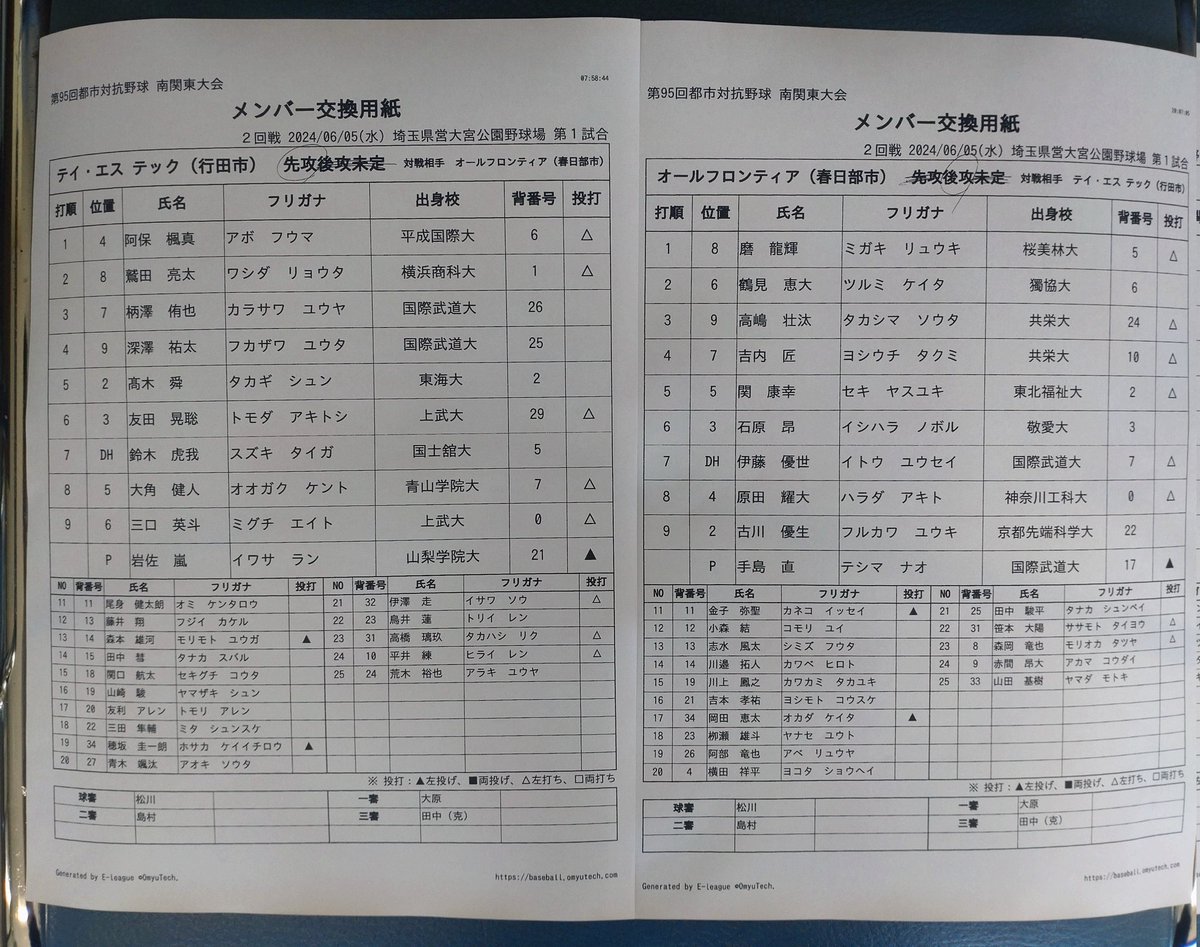 07:58:44
第95回都市対抗野球 南関東大会
メンバー交換用紙
2回戦 2024/06/05(水) 埼玉県営大宮公園野球場 第1試合
テイ・エス テック（行田市） 先攻後攻未定 対戦相手 オールフロンティア（春日部市）
打順 位置 氏名 フリガナ 出身校 背番号 投打
1 4 阿保 楓真 アボ フウマ 平成国際大 6 △
2 8 鷲田 亮太 ワシダ リョウタ 横浜商科大 1 △
3 7 柄澤 侑也 カラサワ ユウヤ 国際武道大 26
4 9 深澤 祐太 フカザワ ユウタ 国際武道大 25
5 2 髙木 舜 タカギ シュン 東海大 2
6 3 友田 晃聡 トモダ アキトシ 上武大 29 △
7 DH 鈴木 虎我 スズキ タイガ 国士舘大 5
8 5 大角 健人 オオガク ケント 青山学院大 7 △
9 6 三口 英斗 ミグチ エイト 上武大 0 △
P 岩佐 嵐 イワサ ラン 山梨学院大 21 ▲
NO 背番号 氏名 フリガナ 投打 NO 背番号 氏名 フリガナ 投打
11 11 尾身 健太朗 オミ ケンタロウ 21 32 伊澤 走 イサワ ソウ △
12 13 藤井 翔 フジイ カケル 22 23 鳥井 蓮 トリイ レン
13 14 森本 雄河 モリモト ユウガ ▲ 23 31 高橋 璃玖 タカハシ リク △
14 15 田中 彗 タナカ スバル 24 10 平井 練 ヒライ レン △
15 18 関口 航太 セキグチ コウタ 25 24 荒木 裕也 アラキ ユウヤ
16 19 山崎 駿 ヤマザキ シュン
17 20 友利 アレン トモリ アレン
18 22 三田 隼輔 ミタ シュンスケ
19 34 穂坂 圭一朗 ホサカ ケイイチロウ ▲
20 27 青木 颯汰 アオキ ソウタ
※ 投打：▲左投げ、■両投げ、△左打ち、□両打ち
球審 松川 一審 大原
二審 島村 三審 田中（克）
Generated by E-league ©OmyuTech. https://baseball.omyutech.com
第95回都市対抗野球 南関東大会
メンバー交換用紙
2回戦 2024/06/05(水) 埼玉県営大宮公園野球場 第1試合
オールフロンティア（春日部市） 先攻後攻未定 対戦相手 テイ・エス テック（行田市）
打順 位置 氏名 フリガナ 出身校 背番号 投打
1 8 磨 龍輝 ミガキ リュウキ 桜美林大 5 △
2 6 鶴見 恵大 ツルミ ケイタ 獨協大 6
3 9 高嶋 壮汰 タカシマ ソウタ 共栄大 24 △
4 7 吉内 匠 ヨシウチ タクミ 共栄大 10 △
5 5 関 康幸 セキ ヤスユキ 東北福祉大 2 △
6 3 石原 昂 イシハラ ノボル 敬愛大 3
7 DH 伊藤 優世 イトウ ユウセイ 国際武道大 7 △
8 4 原田 耀大 ハラダ アキト 神奈川工科大 0 △
9 2 古川 優生 フルカワ ユウキ 京都先端科学大 22
P 手島 直 テシマ ナオ 国際武道大 17 ▲
NO 背番号 氏名 フリガナ 投打 NO 背番号 氏名 フリガナ 投打
11 11 金子 弥聖 カネコ イッセイ ▲ 21 25 田中 駿平 タナカ シュンペイ
12 12 小森 結 コモリ ユイ 22 31 笹本 大陽 ササモト タイヨウ △
13 13 志水 風太 シミズ フウタ 23 8 森岡 竜也 モリオカ タツヤ △
14 14 川邉 拓人 カワベ ヒロト 24 9 赤間 昂大 アカマ コウダイ
15 19 川上 鳳之 カワカミ タカユキ 25 33 山田 基樹 ヤマダ モトキ
16 21 吉本 孝祐 ヨシモト コウスケ
17 34 岡田 恵太 オカダ ケイタ ▲
18 23 柳瀬 雄斗 ヤナセ ユウト
19 26 阿部 竜也 アベ リュウヤ
20 4 横田 祥平 ヨコタ ショウヘイ
※ 投打：▲左投げ、■両投げ、△左打ち、□両打ち
球審 松川 一審 大原
二審 島村 三審 田中（克）
Generated by E-league ©OmyuTech. https://baseball.omyutech.com